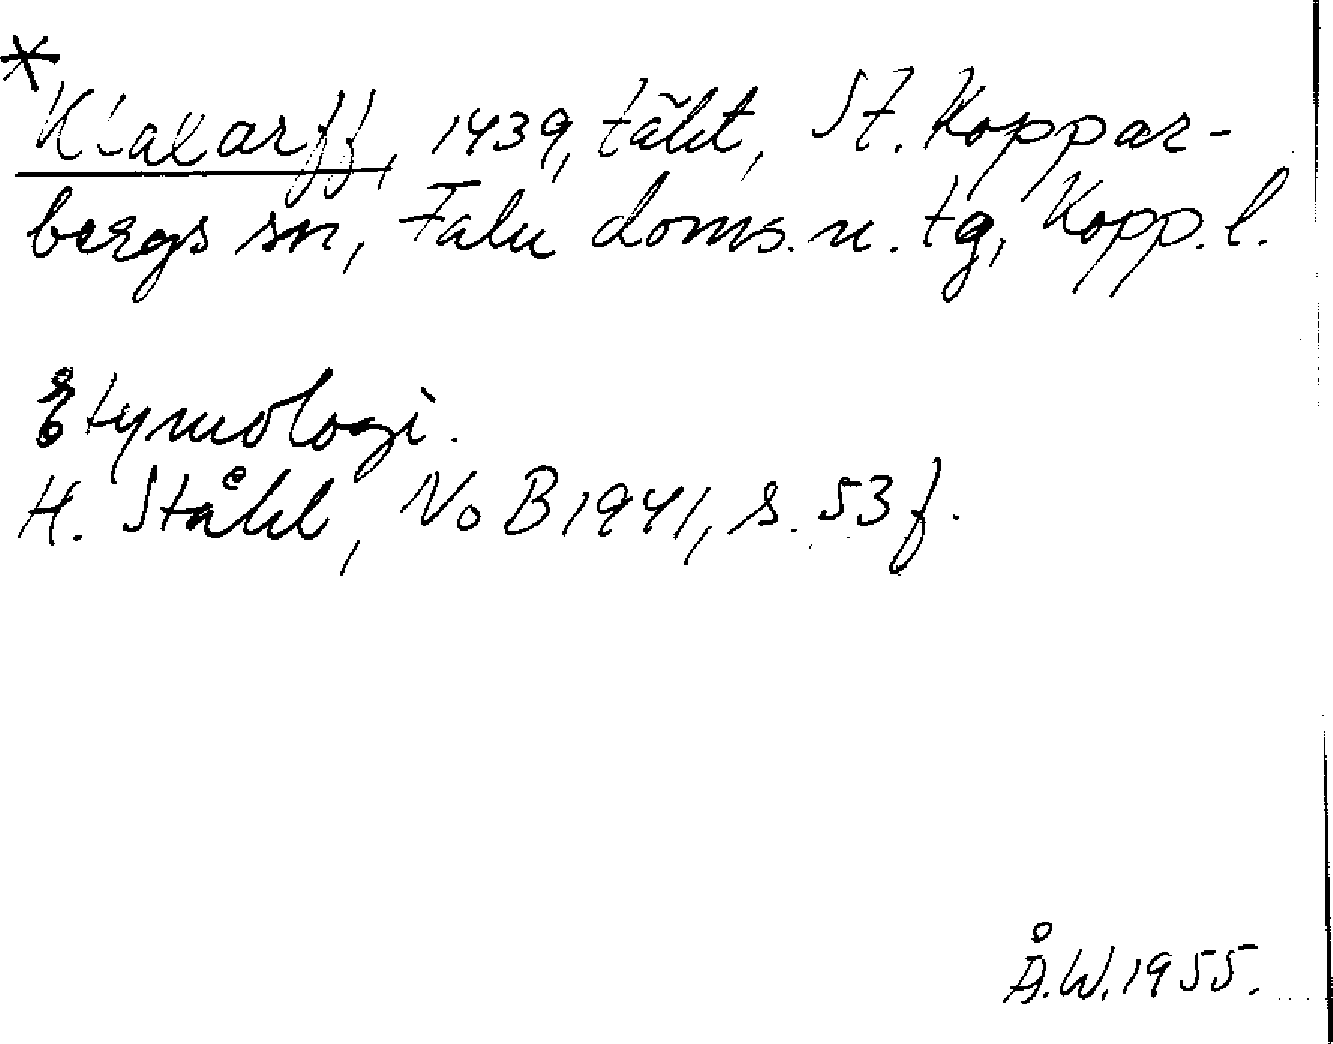 *Kialarff, 1439, täkt, St. Koppar-
bergs sn, Falu doms. n. tg, Kopp. l.
Etymologi.
H. Ståhl, NoB 1941, s. 53 f.
Å.W. 1955.